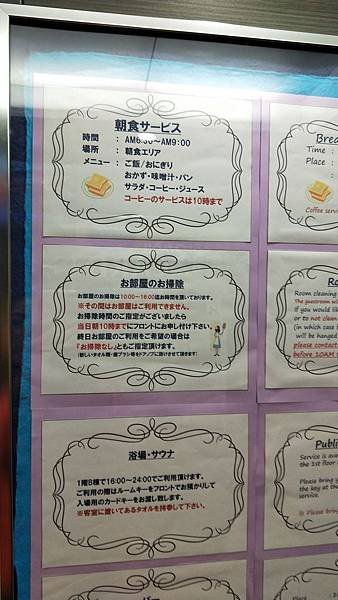 朝食サービス
時間 : AM6:30~AM9:00
場所 : 朝食エリア
メニュー : ご飯/おにぎり
おかず・味噌汁・パン
サラダ・コーヒー・ジュース
コーヒーのサービスは10時まで
Brea
Time :
Place :
Coffee serv
お部屋のお掃除
お部屋のお掃除は10:00~16:00迄お時間を頂いております。
※その間はお部屋はご利用できません。
お掃除時間のご指定がございましたら
当日朝10時までにフロントにお申し付け下さい。
終日お部屋のご利用をご希望の場合は
『お掃除なし』ともご指定頂けます。
(新しいタオル類・歯ブラシ等をドアノブに掛けさせて頂きます)
Ro
Room cleaning
The guestroom wil
If you would like
or to not clean
(in which case
will be hanged
please contact
before 10AM
浴場・サウナ
1階B棟で16:00~24:00でご利用頂けます。
ご利用の際はルームキーをフロントでお預かりして
入場用のカードキーをお渡し致します。
※客室に置いてあるタオルを持参して下さい。
Public
Service is avai
the 1st floor
Please bring y
the key at the
service.
※ Please Bring
バー